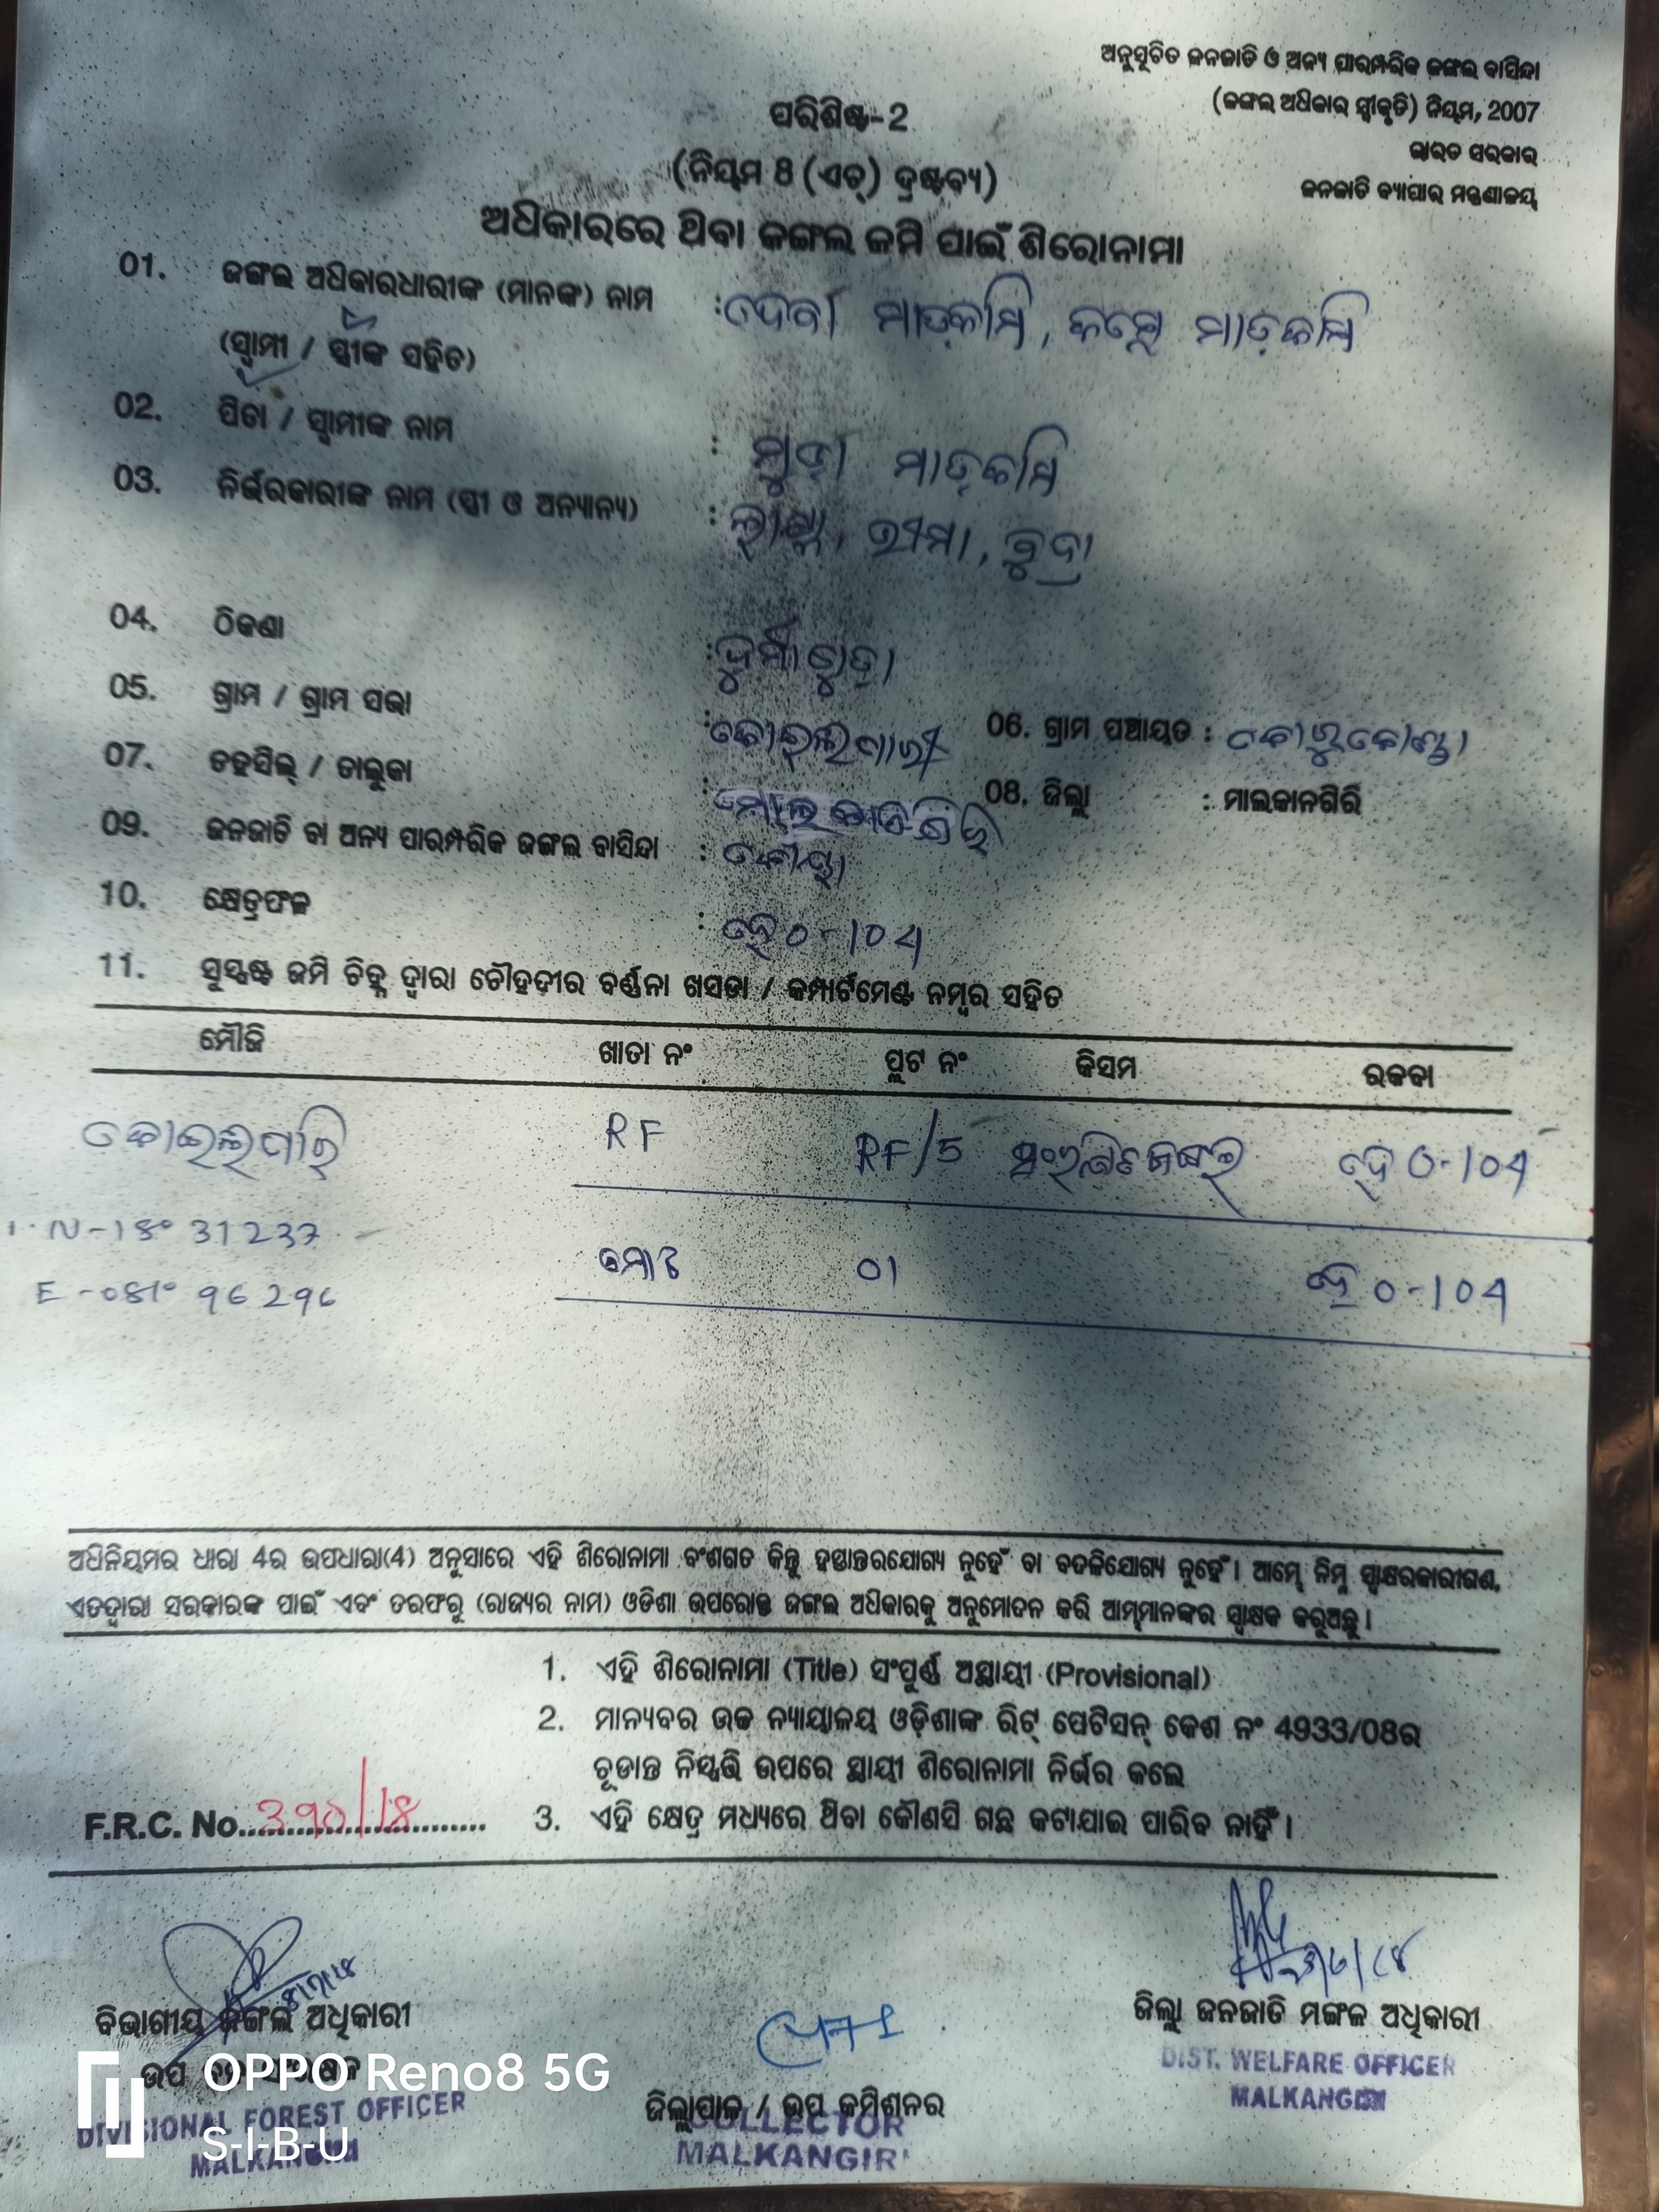 ଅନୁସୂଚିତ ଜନଜାତି ଓ ଅନ୍ୟ ପାରମ୍ପରିକ ଜଙ୍ଗଲ ବାସିନ୍ଦା
(ଜଙ୍ଗଲ ଅଧିକାର ସ୍ୱୀକୃତି) ନିୟମ, 2007
ଭାରତ ସରକାର
ଜନଜାତି ବ୍ୟାପାର ମନ୍ତ୍ରଣାଳୟ
ପରିଶିଷ୍ଟ-2
(ନିୟମ 8 (ଏଚ୍) ଦ୍ରଷ୍ଟବ୍ୟ)
ଅଧିକାରରେ ଥିବା ଜଙ୍ଗଲ ଜମି ପାଇଁ ଶିରୋନାମା
01. ଜଙ୍ଗଲ ଅଧିକାରଧାରୀଙ୍କ (ମାନଙ୍କ) ନାମ : ଦେବା ମାଡ଼କାମି, ମାଡ଼କାମି
(ସ୍ୱାମୀ / ସ୍ତ୍ରୀଙ୍କ ସହିତ)
02. ପିତା / ସ୍ୱାମୀଙ୍କ ନାମ : ମାଡ଼କାମି
03. ନିର୍ଭରକାରୀଙ୍କ ନାମ (ସ୍ତ୍ରୀ ଓ ଅନ୍ୟାନ୍ୟ) : ଭୀମା,
04. ଠିକଣା :
05. ଗ୍ରାମ / ଗ୍ରାମ ସଭା : 06. ଗ୍ରାମ ପଞ୍ଚାୟତ :
07. ତହସିଲ୍ / ତାଲୁକା : ମାଲକାନଗିରି 08. ଜିଲ୍ଲା : ମାଲକାନଗିରି
09. ଜନଜାତି ବା ଅନ୍ୟ ପାରମ୍ପରିକ ଜଙ୍ଗଲ ବାସିନ୍ଦା : କୋୟା
10. କ୍ଷେତ୍ରଫଳ : ହେ 0-104
11. ସୁସ୍ପଷ୍ଟ ଜମି ଚିହ୍ନ ଦ୍ୱାରା ଚୌହଦୀର ବର୍ଣ୍ଣନା ଖସଡା / କମ୍ପାର୍ଟମେଣ୍ଟ ନମ୍ବର ସହିତ
ମୌଜି ଖାତା ନଂ ପ୍ଲଟ ନଂ କିସମ ରକବା
RF RF/5 ହେ 0-104
N-18° 31237
ମୋଟ 01 ହେ 0-104
E-081° 96296
ଅଧିନିୟମର ଧାରା 4ର ଉପଧାରା(4) ଅନୁସାରେ ଏହି ଶିରୋନାମା ବଂଶଗତ କିନ୍ତୁ ହସ୍ତାନ୍ତରଯୋଗ୍ୟ ନୁହେଁ ବା ବଦଳିଯୋଗ୍ୟ ନୁହେଁ। ଆମ୍ଭେ ନିମ୍ନ ସ୍ୱାକ୍ଷରକାରୀଗଣ,
ଏତଦ୍ୱାରା ସରକାରଙ୍କ ପାଇଁ ଏବଂ ତରଫରୁ (ରାଜ୍ୟର ନାମ) ଓଡିଶା ଉପରୋକ୍ତ ଜଙ୍ଗଲ ଅଧିକାରକୁ ଅନୁମୋଦନ କରି ଆମ୍ଭମାନଙ୍କର ସ୍ୱାକ୍ଷର କରୁଅଛୁ।
1. ଏହି ଶିରୋନାମା (Title) ସଂପୂର୍ଣ୍ଣ ଅସ୍ଥାୟୀ (Provisional)
2. ମାନ୍ୟବର ଉଚ୍ଚ ନ୍ୟାୟାଳୟ ଓଡ଼ିଶାଙ୍କ ରିଟ୍ ପେଟିସନ୍ କେଶ ନଂ 4933/08ର
ଚୂଡାନ୍ତ ନିସ୍ପତ୍ତି ଉପରେ ସ୍ଥାୟୀ ଶିରୋନାମା ନିର୍ଭର କଲେ
F.R.C. No. 390/18 3. ଏହି କ୍ଷେତ୍ର ମଧ୍ୟରେ ଥିବା କୌଣସି ଗଛ କଟାଯାଇ ପାରିବ ନାହିଁ।
ବିଭାଗୀୟ ଜଙ୍ଗଲ ଅଧିକାରୀ
ଉପ
DIVISIONAL FOREST OFFICER
MALKANGIRI
ଜିଲ୍ଲାପାଳ / ଉପ କମିଶନର
COLLECTOR
MALKANGIRI
ଜିଲ୍ଲା ଜନଜାତି ମଙ୍ଗଳ ଅଧିକାରୀ
DIST. WELFARE OFFICER
MALKANGIRI
OPPO Reno8 5G
S-I-B-U